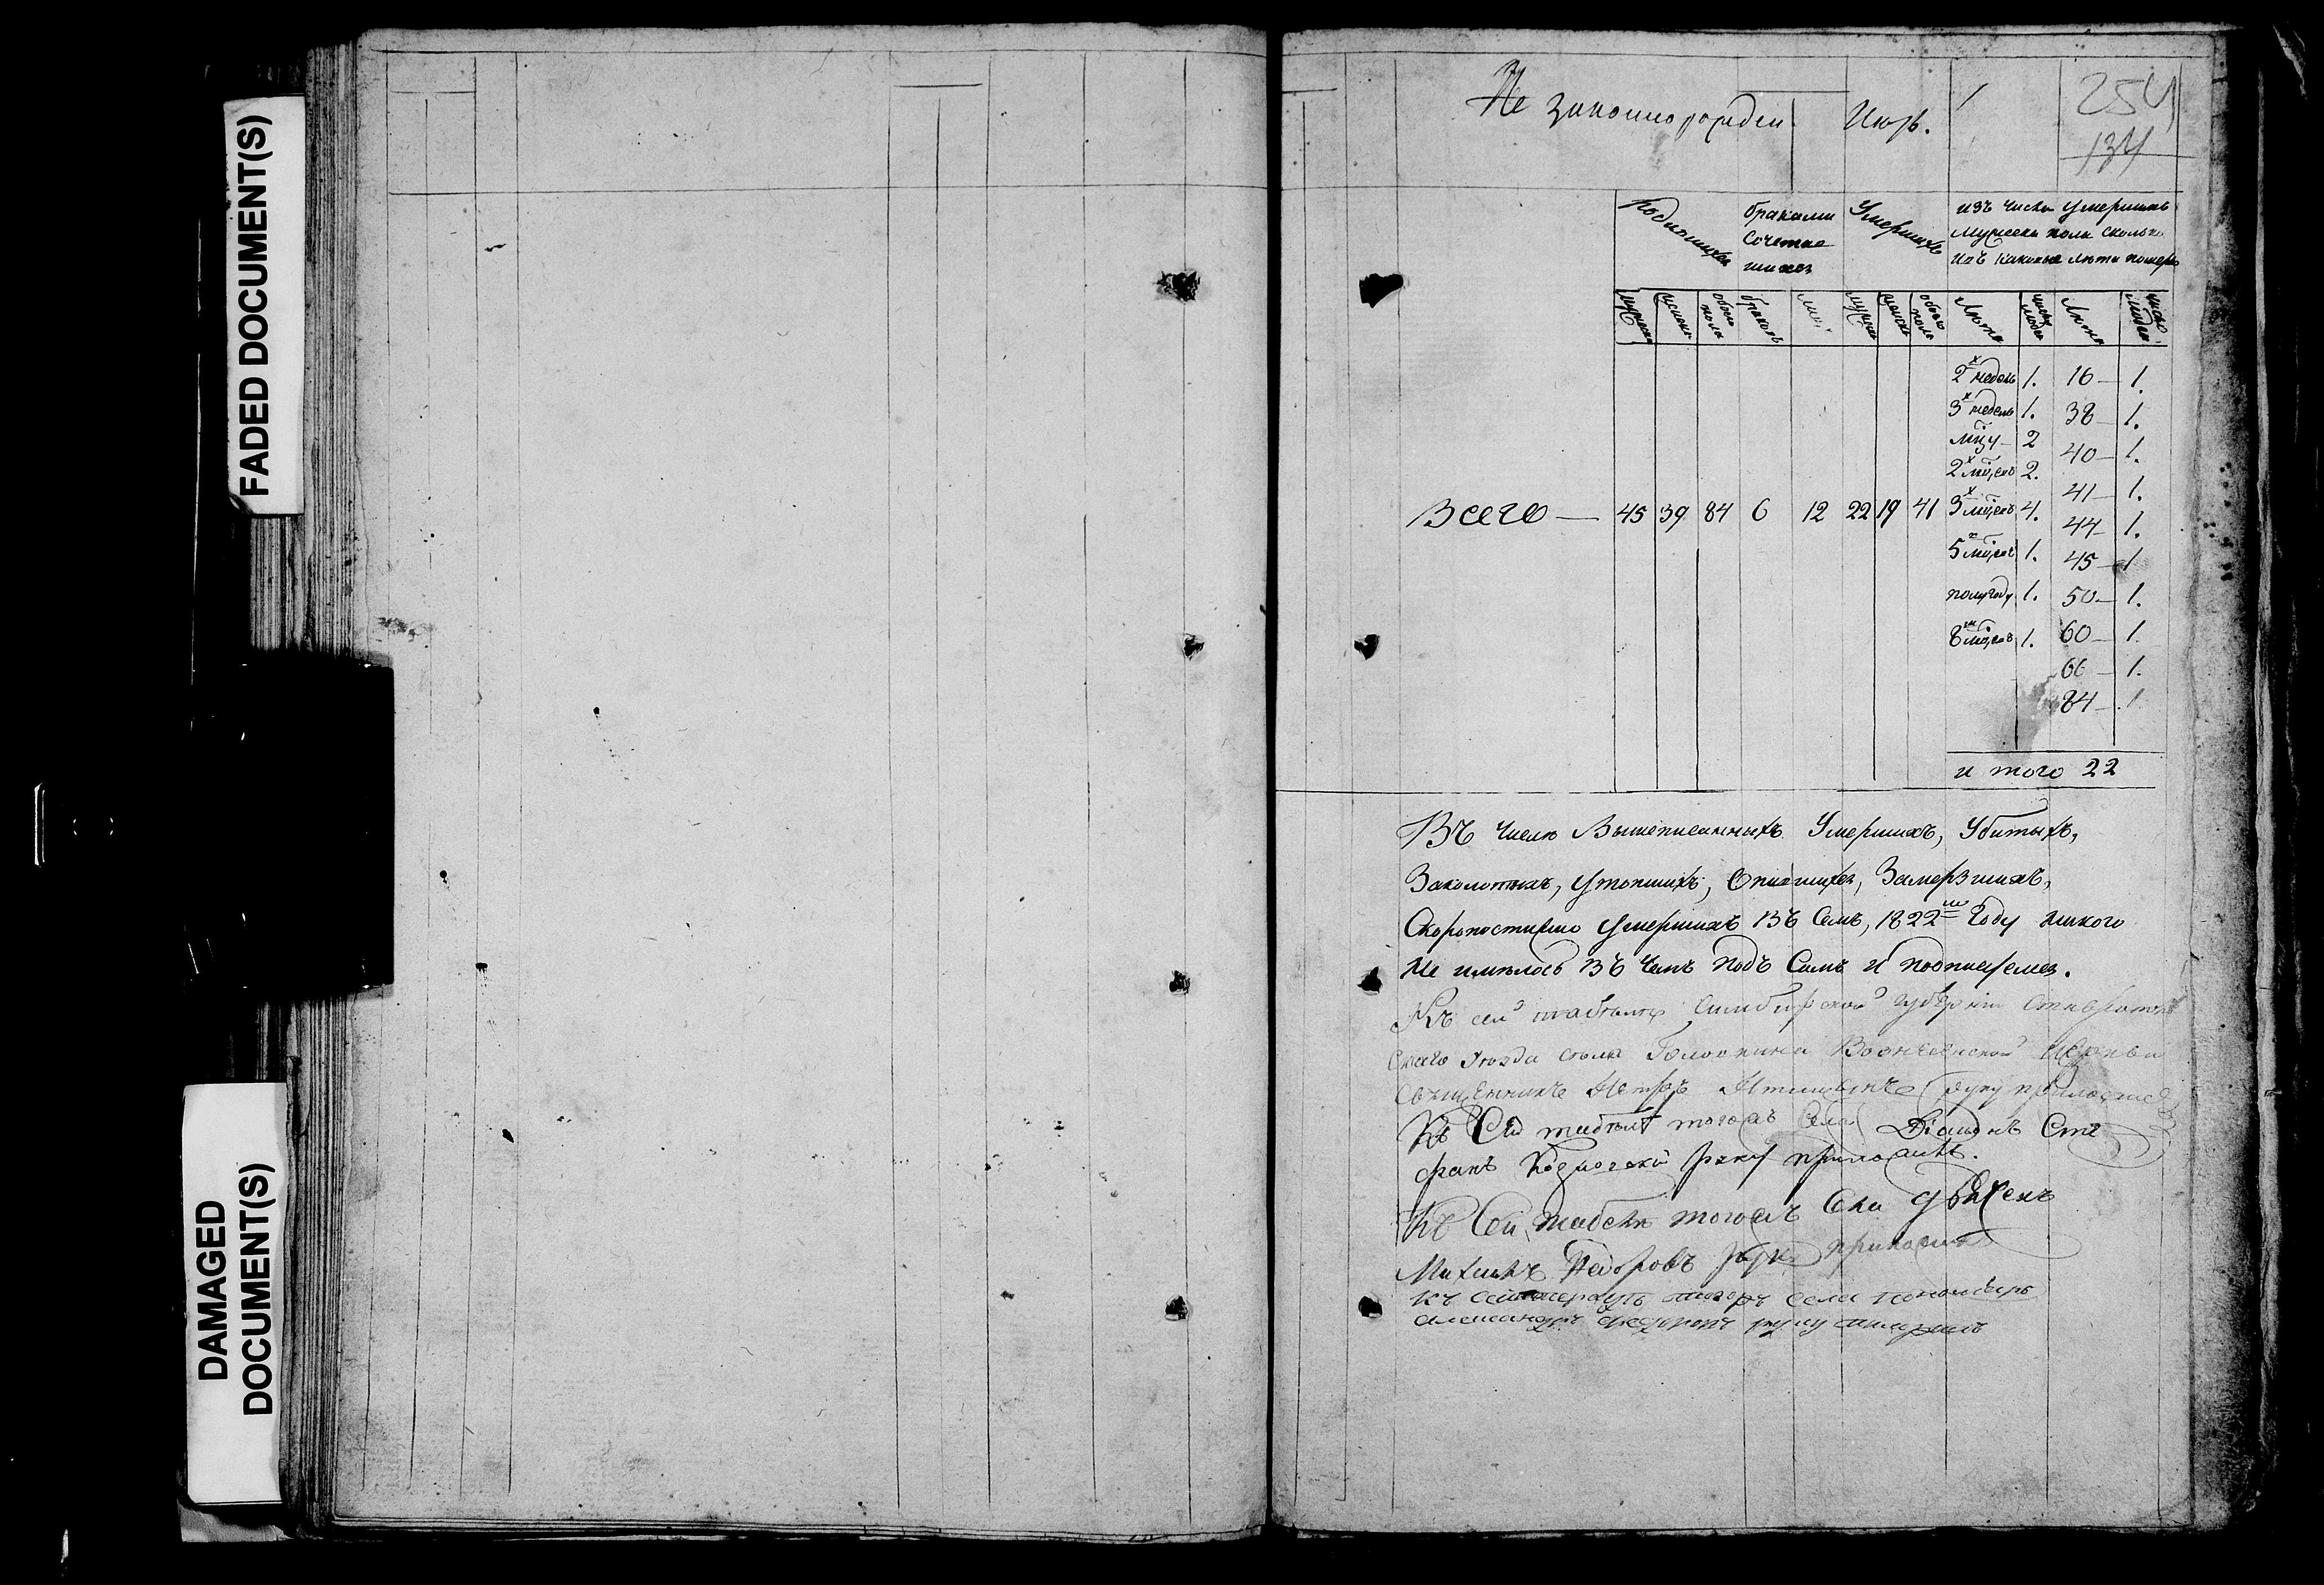 FADED DOCUMENT(S)
DAMAGED
DOCUMENT(S)
Не законнорожден.
254
134
Родившихся
браками
Сочетав
шихся
Умершихъ
изъ числа Умершихъ
Мужеска пола сколько
ихъ какихъ лѣтъ померло
мужеска
женска
обоего пола
браковъ
мужеска
женска
обоего пола
Лѣта
число людей
Лѣта
число людей
2х недель 1. 16 — 1.
3х недель 1. 38 — 1.
мцу — 2 40 — 1.
2х мцовъ 2. 41 — 1.
Всего — 45 39 84 6 12 22 19 41 3х мцовъ 4.
44 — 1.
5 мцовъ 1. 45 — 1
полугоду 1. 50 — 1.
8ми мцовъ 1. 60 — 1.
66 — 1.
84 — 1
и того 22
Въ числѣ Вышеписанныхъ Умершихъ, Убитыхъ,
Заколотыхъ, Утопшихъ, Опившихся, Замерзшихъ,
Скоропостижно Умершихъ Въ Семъ, 1822м Году никого
Не имѣлось Въ чемъ подъ Симъ и подписуемся.
Къ сей табели Симбирской губерніи Ставрополь
скаго уѣзда села Вознесенской церкви
священникъ Петръ руку приложилъ
Къ Сей табели тогожъ Села Діаконъ Сте
фанъ руку приложилъ.
Къ Сей табели тогожъ Села
Михаилъ Федоровъ руку приложилъ
Къ сей тогожъ села пономарь
руку приложилъ